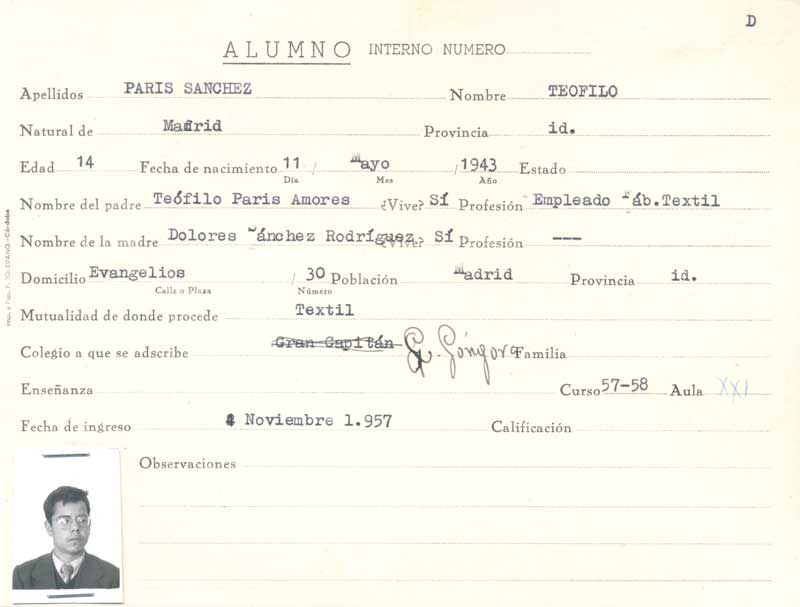 D
ALUMNO INTERNO NUMERO
Apellidos PARIS SANCHEZ Nombre TEOFILO
Natural de Madrid Provincia id.
Edad 14 Fecha de nacimiento 11 / Mayo / 1943 Estado
Día Mes Año
Nombre del padre Teófilo Paris Amores ¿Vive? Sí Profesión Empleado Fáb.Textil
Nombre de la madre Dolores Sánchez Rodríguez ¿Vive? Sí Profesión ---
Domicilio Evangelios / 30 Población Madrid Provincia id.
Calle o Plaza Número
Mutualidad de donde procede Textil
Colegio a que se adscribe Gran Capitán G. Góngora Familia
Enseñanza Curso 57-58 Aula XXI
Fecha de ingreso Noviembre 1.957 Calificación
Observaciones
TOLEDANO.-Córdoba